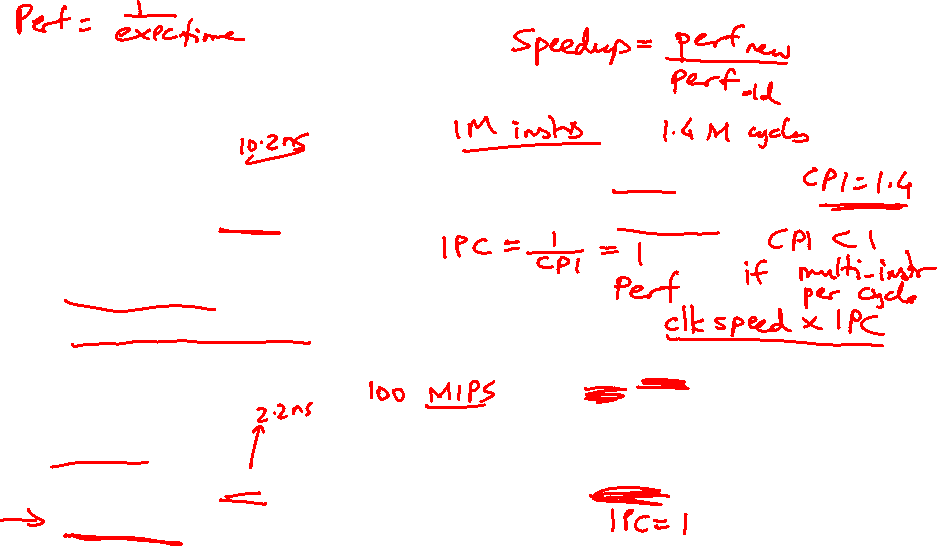 Perf = 1 / exec time
Speedup = perf new / perf old
1M instrs 1.4 M cycles
10.2 ns
CPI = 1.4
IPC = 1 / CPI = 1
CPI < 1
if multi-instr
per cycle
Perf
clk speed x IPC
100 MIPS
2.2 ns
IPC = 1